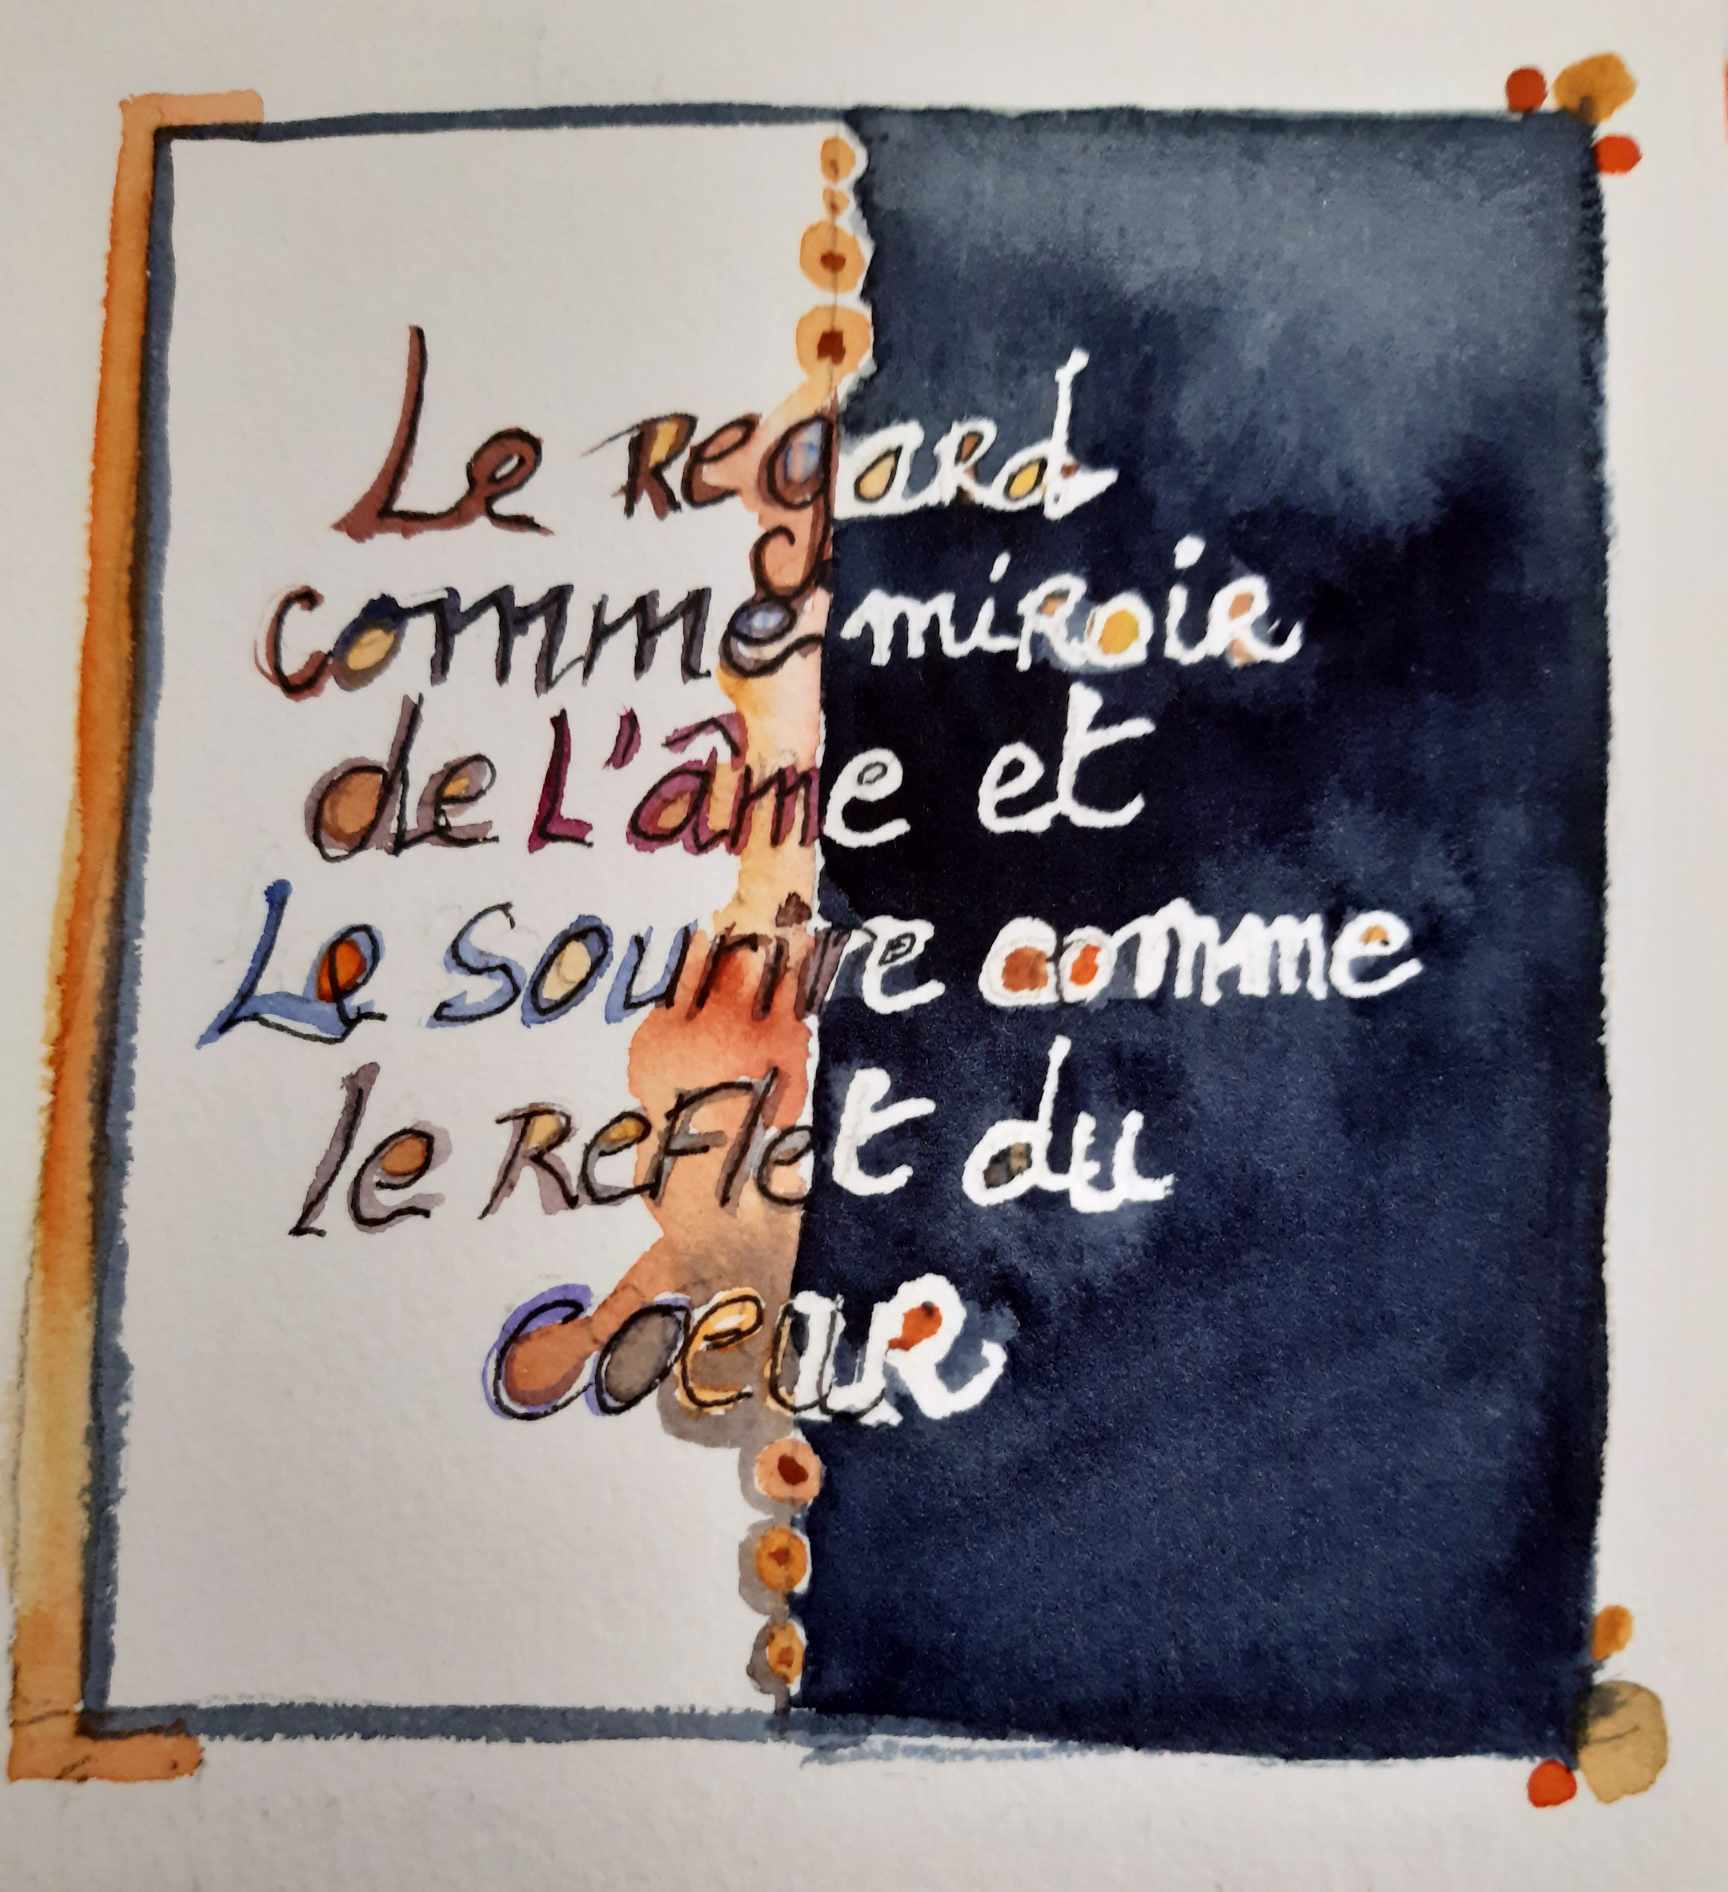 Le Regard
comme miroir
de L'âme et
Le sourire comme
le Reflet du
coeuR